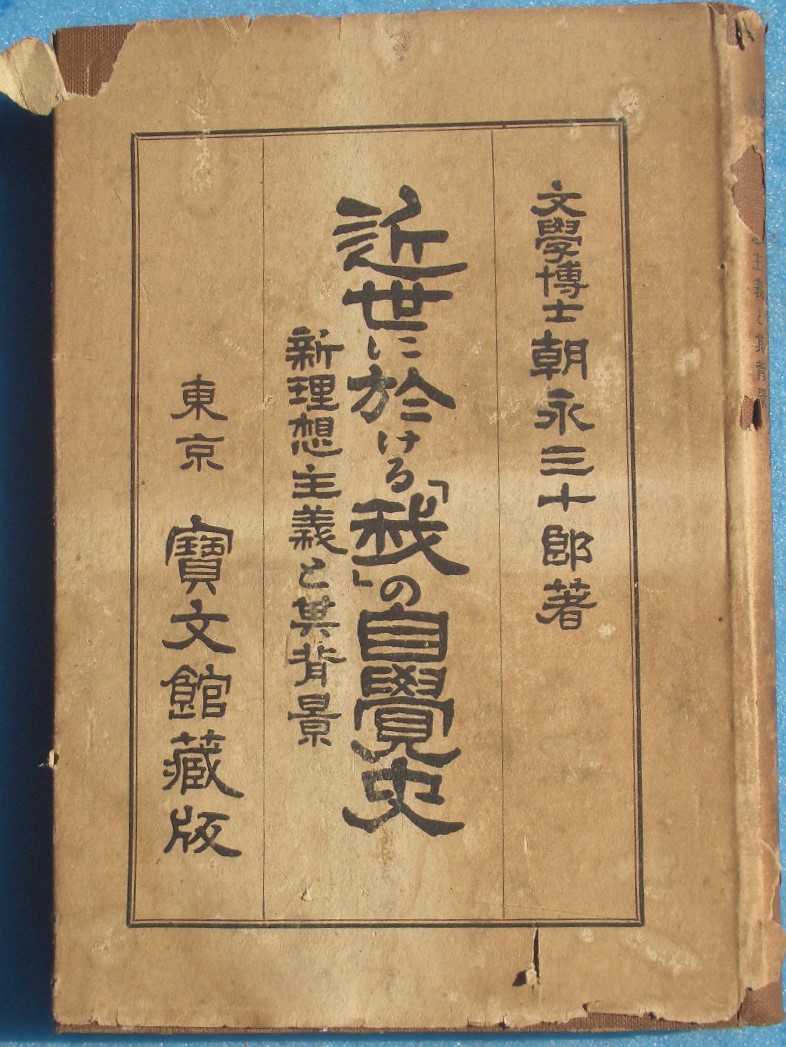 文學博士 朝永三十郎著
近世に於ける「我」の自覺史
新理想主義と其背景
東京 寶文館藏版
主義と其背景